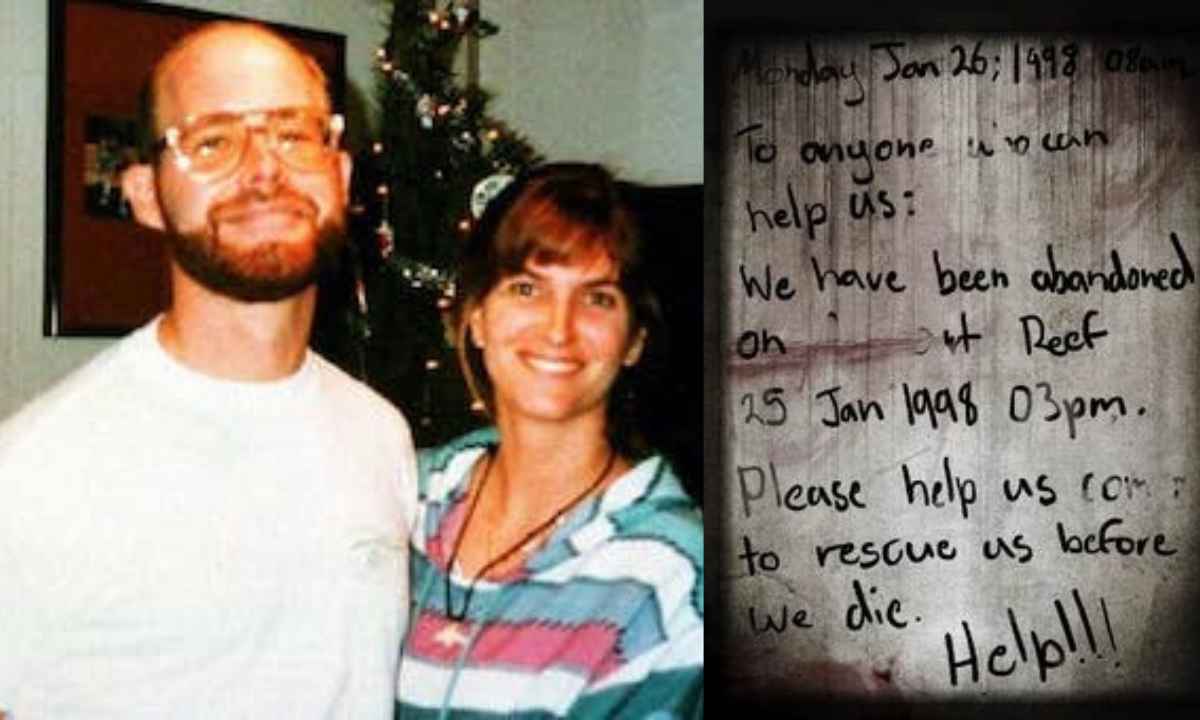 Monday Jan 26; 1998 08am
To anyone who can
help us:
We have been abandoned
on Reef
25 Jan 1998 03pm.
Please help us
to rescue us before
we die.
Help!!!